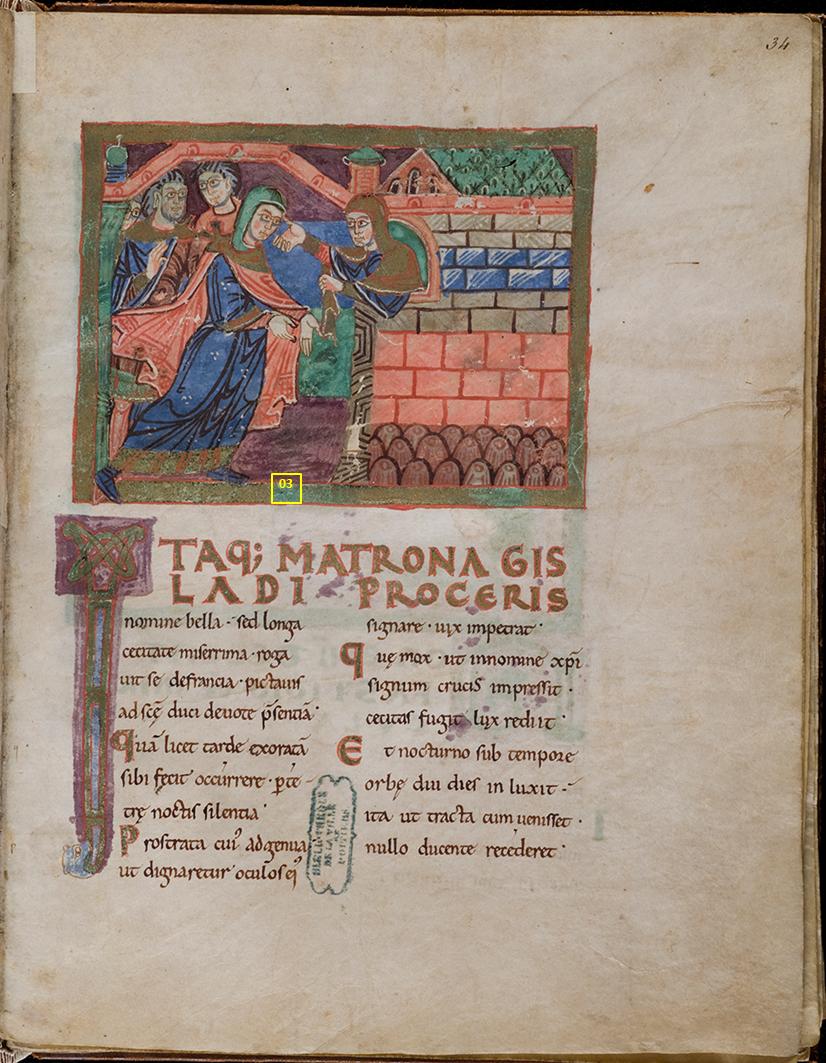 34
03
ITAQ; MATRONA GIS
LADI PROCERIS
nomine bella · sed longa
cecitate miserrima · roga
uit se defrancia · pictauis
ad scę duci deuote p̄sentiā ·
Quā licet tarde exoratā
sibi fecit occurrere · p̱te
trę noctis silentia ·
Prostrata cui᾽ ad genua
ut dignaretur oculos ei᾽
signare · uix impetrat ·
Quę mox · ut in nomine xp̄i
signum crucis impressit ·
cecitas fugit lux rediit ·
Et nocturno sub tempore
orbę diu dies in luxit ·
ita ut tracta cum uenisset ·
nullo ducente recederet ·
BIBLIOTHEQUE
DE LA VILLE
DE
POITIERS